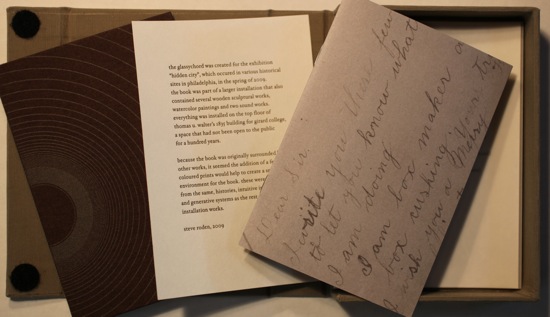 the glassychord was created for the exhibition
"hidden city", which occured in various historical
sites in philadelphia, in the spring of 2009.
the book was part of a larger installation that also
contained several wooden sculptural works,
watercolor paintings and two sound works.
everything was installed on the top floor of
thomas u. walter's 1835 building for girard college,
a space that had not been open to the public
for a hundred years.
because the book was originally surrounded
other works, it seemed the addition of a
coloured prints would help to create a
environment for the book. these were
from the same, histories, intuitive
and generative systems as the rest
installation works.
steve roden, 2009
Dear Sir:
I write you these few
to let you know what
I am doing
I am box maker
box cushing
wish you a Merry